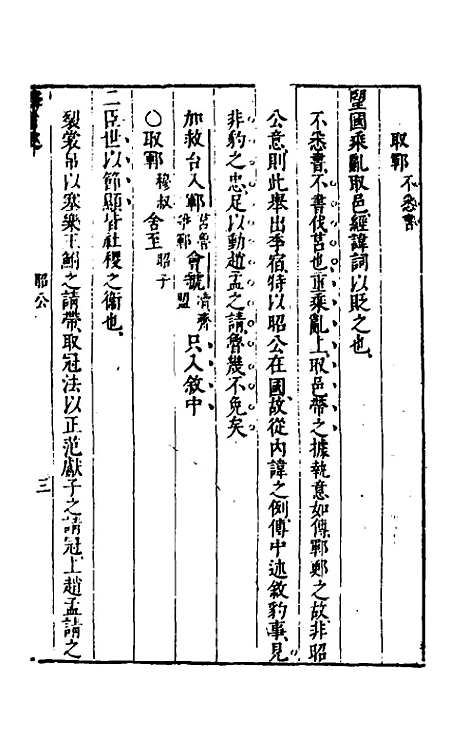 取鄆 不悉書
望國乘亂取邑經諱詞以貶之也
不悉書不書伐莒也重乘亂上取邑帶之據執意如傳鄆鄭之故非昭
公意則此舉出季宿特以昭公在國故從內諱之例傳中述敘豹事見
非豹之忠足以動趙孟之請魯幾不免矣
加救台入鄆 莒魯爭鄆 會虢 清齊盟 只入敘中
○取鄆 穆叔 舍至 昭子
二臣世以節顯皆社稷之衛也
裂裳帛以塞樂王鮒之請帶取冠法以正范獻子之請冠上趙孟請之
昭公 三